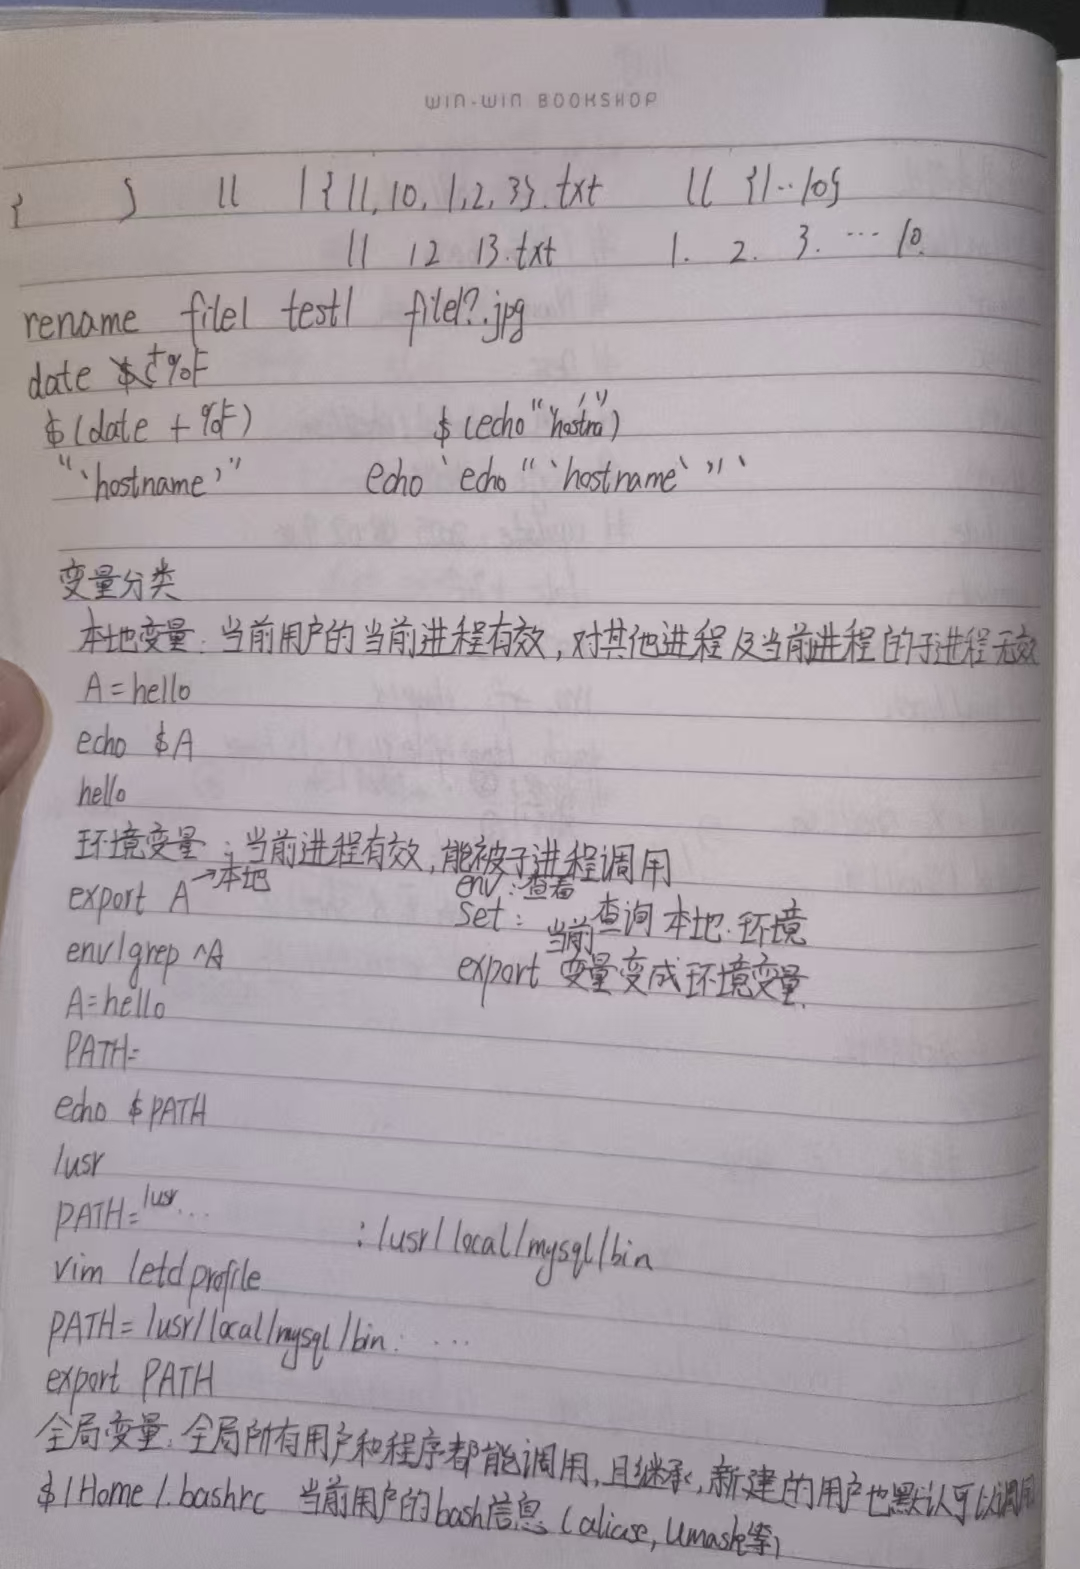 WIN-WIN BOOKSHOP
{ } ll 1{11,10,1,2,3}.txt ll {1..10}
11 12 13.txt 1. 2. 3. ... 10.
rename file1 test1 file1?.jpg
date +%F
$(date +%F) $(echo "`hostna`")
"`hostname`" echo `echo "`hostname`"`
变量分类
本地变量:当前用户的当前进程有效,对其他进程及当前进程的子进程无效
A=hello
echo $A
hello
环境变量:当前进程有效,能被子进程调用
export A →本地 env:查看
set:当前查询本地.环境
env|grep ^A export 变量变成环境变量.
A=hello
PATH=
echo $PATH
/usr
PATH=/usr... :/usr/local/mysql/bin
vim /etc/profile
PATH=/usr/local/mysql/bin: ...
export PATH
全局变量:全局所有用户和程序都能调用,且继承,新建的用户也默认可以调用
$/Home/.bashrc 当前用户的bash信息 (aliase, Umask等)